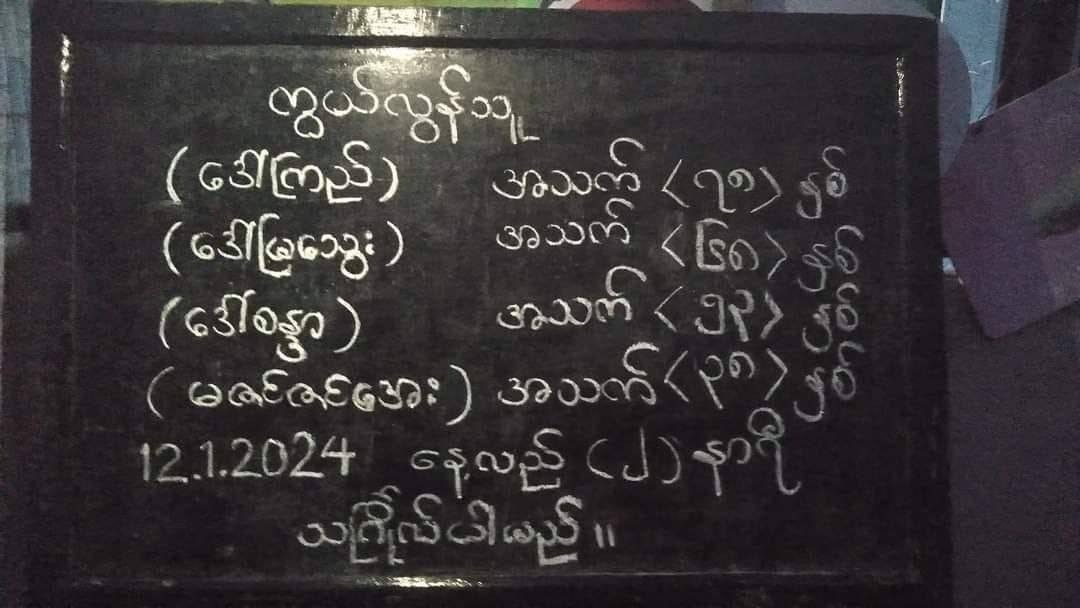 ကွယ်လွန်သူ
(ဒေါ်ကြည်) အသက် <၇၈> နှစ်
(ဒေါ်မြသွေး) အသက် <၆၈> နှစ်
(ဒေါ်စန္ဒာ) အသက် <၅၃> နှစ်
(မဇင်ဇင်အေး) အသက် <၃၈> နှစ်
12.1.2024 နေ့လည် (၂) နာရီ
သင်္ဂြိုလ်ပါမည်။